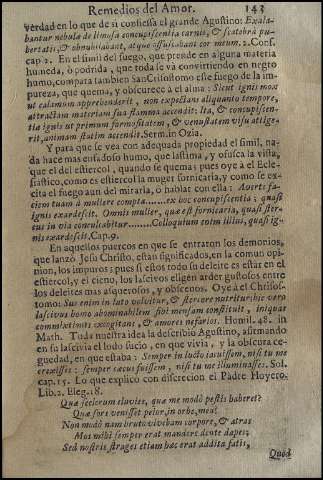 Remedios del Amor. 143
verdad en lo que de si confiessa el grande Agustino: Exala-
bantur nebulæ de limosa concupiscentia carnis, & scatebra pu-
bertatis, & obnubilabant, atque offuscabant cor meum. 2. Conf.
cap. 2. En el simil del fuego, que prende en alguna materia
humeda, ò podrida, que toda se va convirtiendo en negro
humo, compara tambien San Crisostomo este fuego de la im-
pureza, que quema, y obscurece à el alma: Sicut ignis mox
ut calamum apprehenderit, non expectans aliquanto tempore,
attractam materiam sua flamma accendit: Ita, & concupiscen-
tia ignis ut primum formositatem, & venustatem visu attige-
rit, animam statim accendit. Serm. in Ozia.
Y para que se vea con adequada propiedad el simil, na-
da hace mas enfadoso humo, que lastima, y ofusca la vista,
que el del estiercol, quando se quema; pues oye à el Ecle-
siastico, como es estiercol la muger fornicaria, y como se ex-
cita el fuego aun del mirarla, ò hablar con ella: Averte fa-
ciem tuam à muliere compta.......ex hoc concupiscentia; quasi
ignis exardescit. Omnis mulier, quæ est fornicaria, quasi ster-
cus in via conculcabitur.......Colloquium enim illius, quasi ig-
nis exardescit. Cap. 9.
En aquellos puercos en que se entraron los demonios,
que lanzò Jesu Christo, estàn significados, en la comun opi-
nion, los impuros; pues si estos todo su deleite es estàr en el
estiercol, y el cieno, los lascivos eligen arder gustosos entre
los deleites mas asquerosos, y obscenos. Oye à el Chrisos-
tomo: Sus enim in luto volvitur, & stercore nutritur: hic vero
lascivus homo abominabilem sibi mensam constituit, iniquas
commixtiones excogitans, & amores nefarios. Homil. 48. in
Math. Toda nuestra idea la describio Agustino, afirmando
en su lascivia el lodo sucio, en que vivia, y la obscura ce-
guedad, en que estaba: Semper in ludo iacuissem, nisi tu me
erexisses: semper cæcus fuissem, nisi tu me illuminasses. Sol.
cap. 15. Lo que explicò con discrecion el Padre Hoyero.
Lib. 2. Eleg. 18.
Quæ scelerum eluvies, quæ me modò pestis haberet?
Quæ fore venisset peior, in orbe, mea?
Non modò nam bruto vivebam corpore, & atras
Mos mihi semper erat mandere dente dapes;
Sed nostris strages etiam hæc erat addita fatis,
Quod